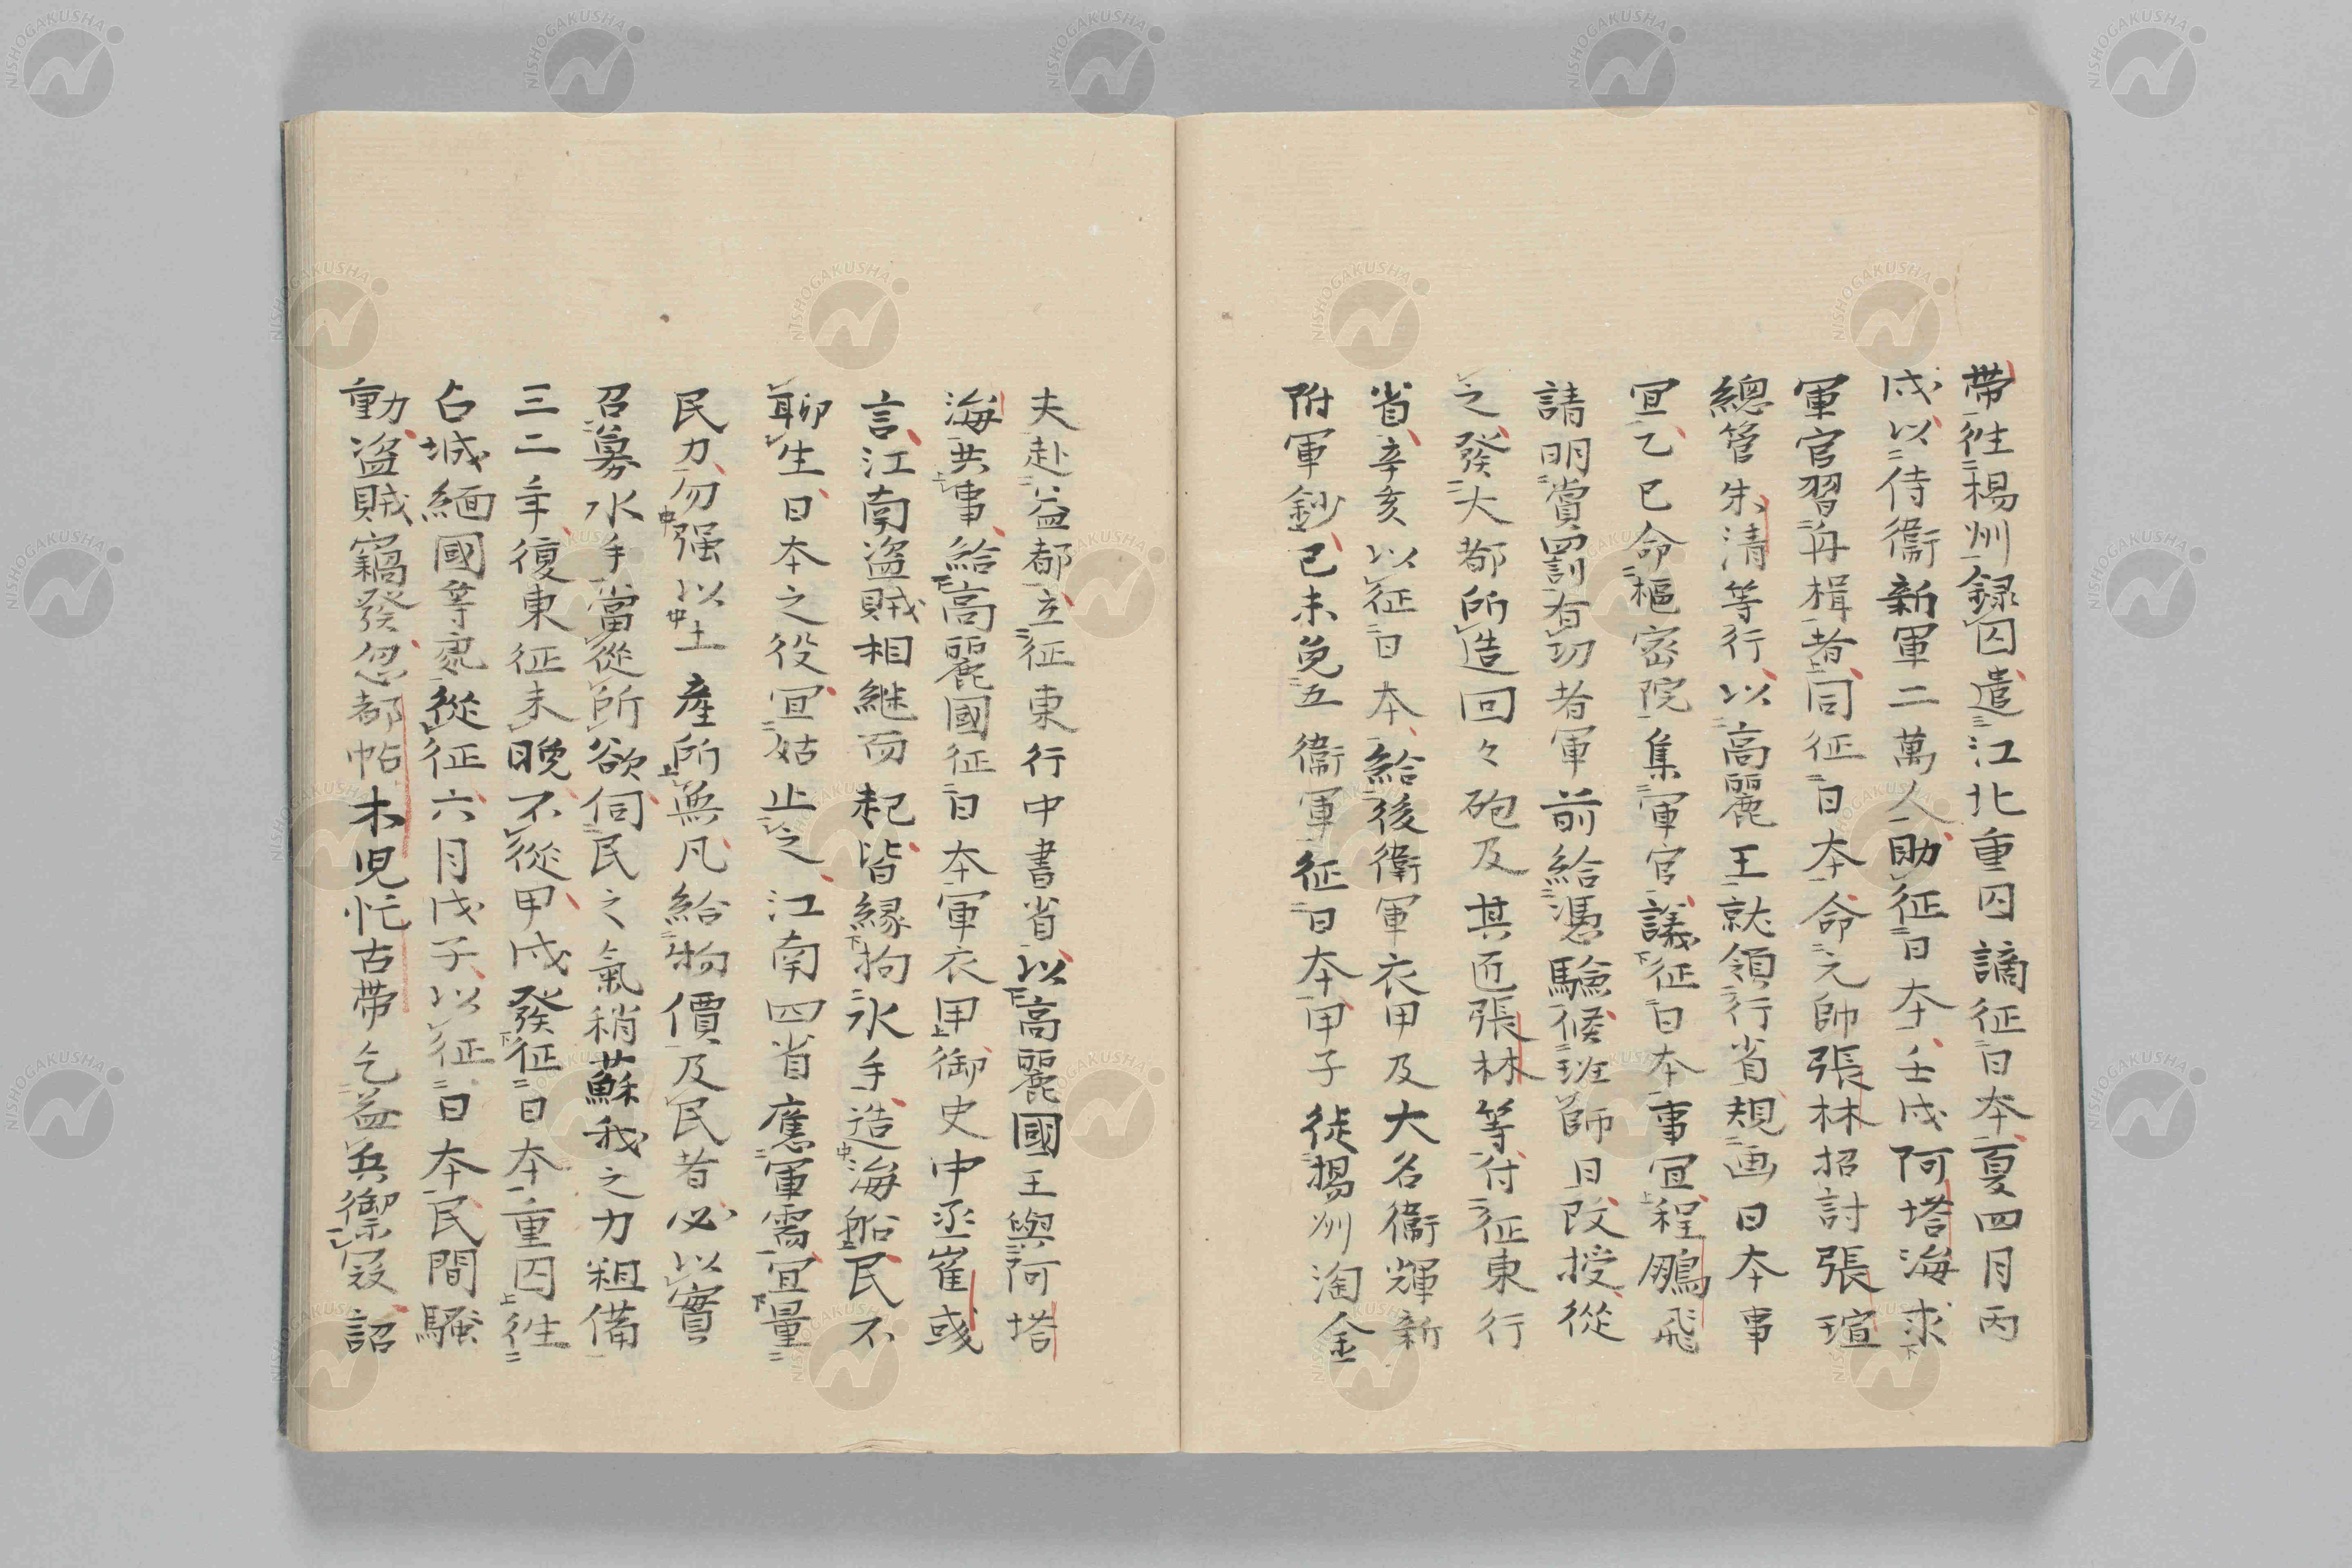 帶往楊州録囚遣江北重囚謫征日本夏四月丙
戌以侍衞新軍二萬人助征日本壬戌阿塔海求
軍官習舟楫者同征日本命元帥張林招討張瑄
總管朱清等行以高麗王就領行省規画日本事
宜乙巳命樞密院集軍官議征日本事宜程鵬飛
請明賞罰有功者軍前給憑驗候班師日改授從
之發大都所造回々砲及其匠張林等付征東行
省辛亥以征日本給後衞軍衣甲及大名衞輝新
附軍鈔已未免五衞軍征日本甲子徙揚州淘金
夫赴益都立征東行中書省以高麗國王與阿塔
海共事給高麗國征日本軍衣甲御史中丞崔彧
言江南盗賊相継而起皆縁拘水手造海船民不
聊生日本之役宜姑止之江南四省應軍需宜量
民力勿强以土産所無凡給物價及民者必以實
召募水手當從所欲伺民之氣稍蘇我之力粗備
三二年復東征未晩不從甲戌發征日本重囚往
占城緬國等處從征六月戊子以征日本民間騒
動盗賊竊發忽都帖木児忙古帶乞益兵禦寇詔
NISHOGAKUSHA
NISHOGAKUSHA
NISHOGAKUSHA
NISHOGAKUSHA
NISHOGAKUSHA